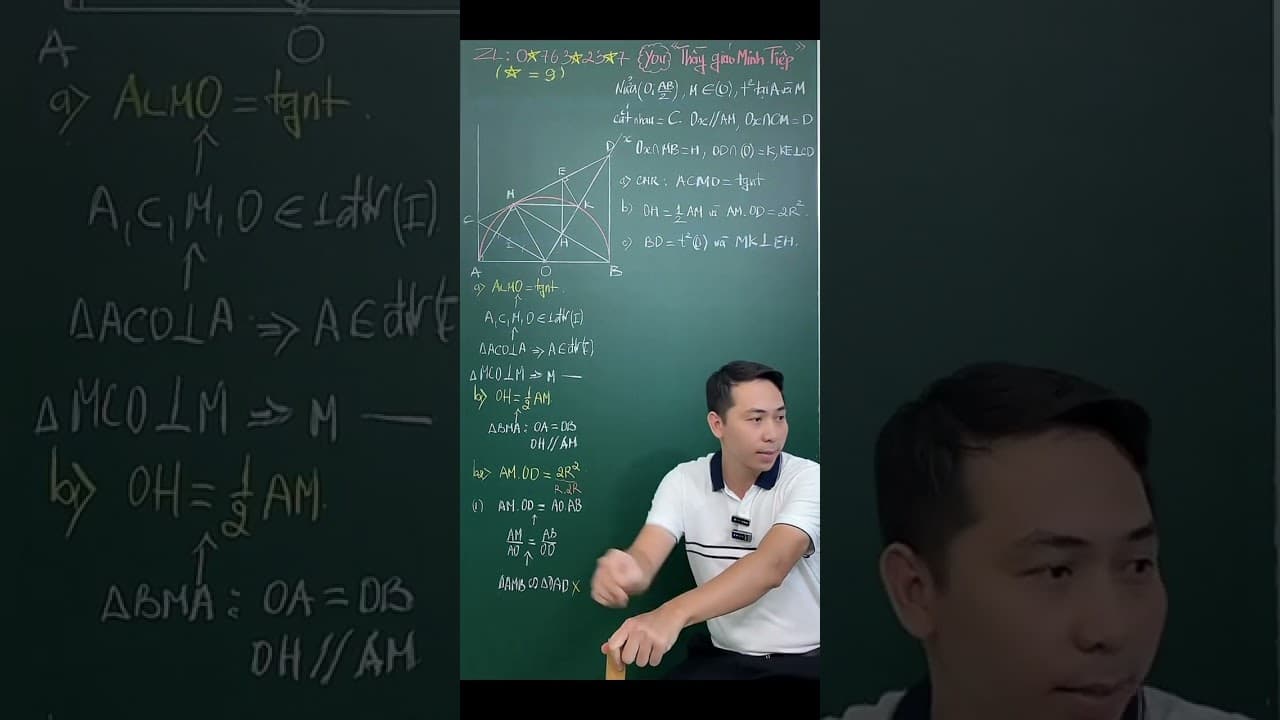 ZL: 0☆763☆23☆7 You "Thầy giáo Minh Tiệp"
(☆ = 9)
Nửa (O; AB/2), M ∈ (O), t² tại A và M
cắt nhau = C. Ox // AM, Ox ∩ CM = D
Ox ∩ MB = H, OD ∩ (O) = K, KE ⊥ CD
a) CMR: ACMO = tgnt
b) OH = 1/2 AM và AM.OD = 2R².
c) BD = t²(O) và MK ⊥ EH.
x
D
E
M
K
C
I
H
A O B
a) ACMO = tgnt.
↑
A, C, M, O ∈ 1 đtr (I)
↑
ΔACO ⊥ A => A ∈ đtr(I)
ΔMCO ⊥ M => M —
b) OH = 1/2 AM
↑
ΔBMA: OA = OB
OH // AM
b2) AM.OD = 2R²
R.2R
(1) AM.OD = AO.AB
↑
AM/AO = AB/OD
↑
A O
a) ACMO = tgnt.
↑
A, C, M, O ∈ 1 đtr (I)
↑
ΔACO ⊥ A => A ∈ đtr(
ΔMCO ⊥ M => M —
b1) OH = 1/2 AM.
↑
ΔBMA: OA = OB
OH // AM